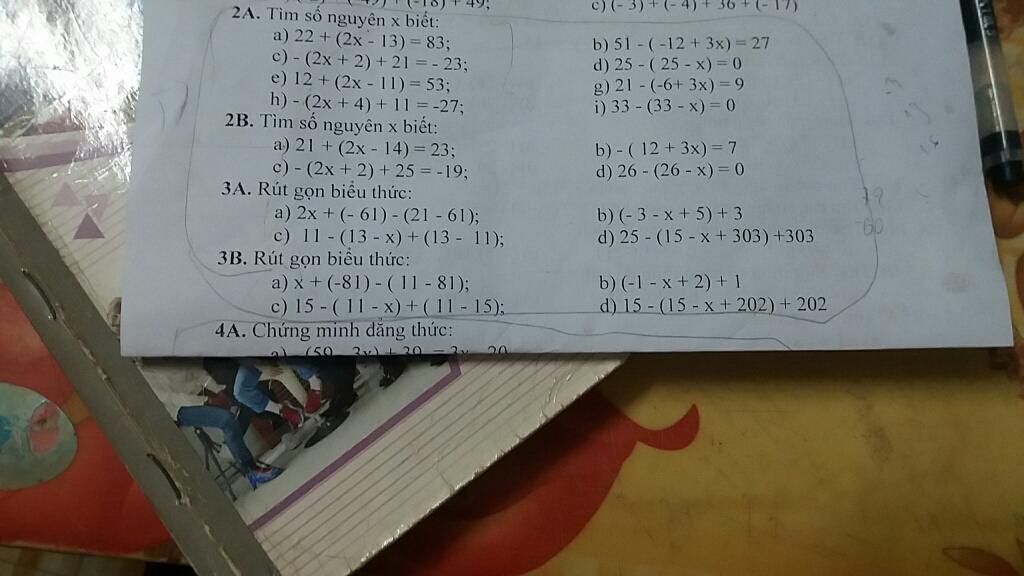 + (-18) + 49;
c) (- 3) + (- 4) + 36 + (- 17)
2A. Tìm số nguyên x biết:
a) 22 + (2x - 13) = 83;
b) 51 - ( -12 + 3x) = 27
c) - (2x + 2) + 21 = - 23;
d) 25 - ( 25 - x) = 0
e) 12 + (2x - 11) = 53;
g) 21 - (-6+ 3x) = 9
h) - (2x + 4) + 11 = -27;
i) 33 - (33 - x) = 0
2B. Tìm số nguyên x biết:
a) 21 + (2x - 14) = 23;
b) - ( 12 + 3x) = 7
c) - (2x + 2) + 25 = -19;
d) 26 - (26 - x) = 0
3A. Rút gọn biểu thức:
a) 2x + (- 61) - (21 - 61);
b) (- 3 - x + 5) + 3
c) 11 - (13 - x) + (13 - 11);
d) 25 - (15 - x + 303) +303
3B. Rút gọn biểu thức:
a) x + (-81) - ( 11 - 81);
b) (-1 - x + 2) + 1
c) 15 - ( 11 - x) + ( 11 - 15);
d) 15 - (15 - x + 202) + 202
4A. Chứng minh đẳng thức: